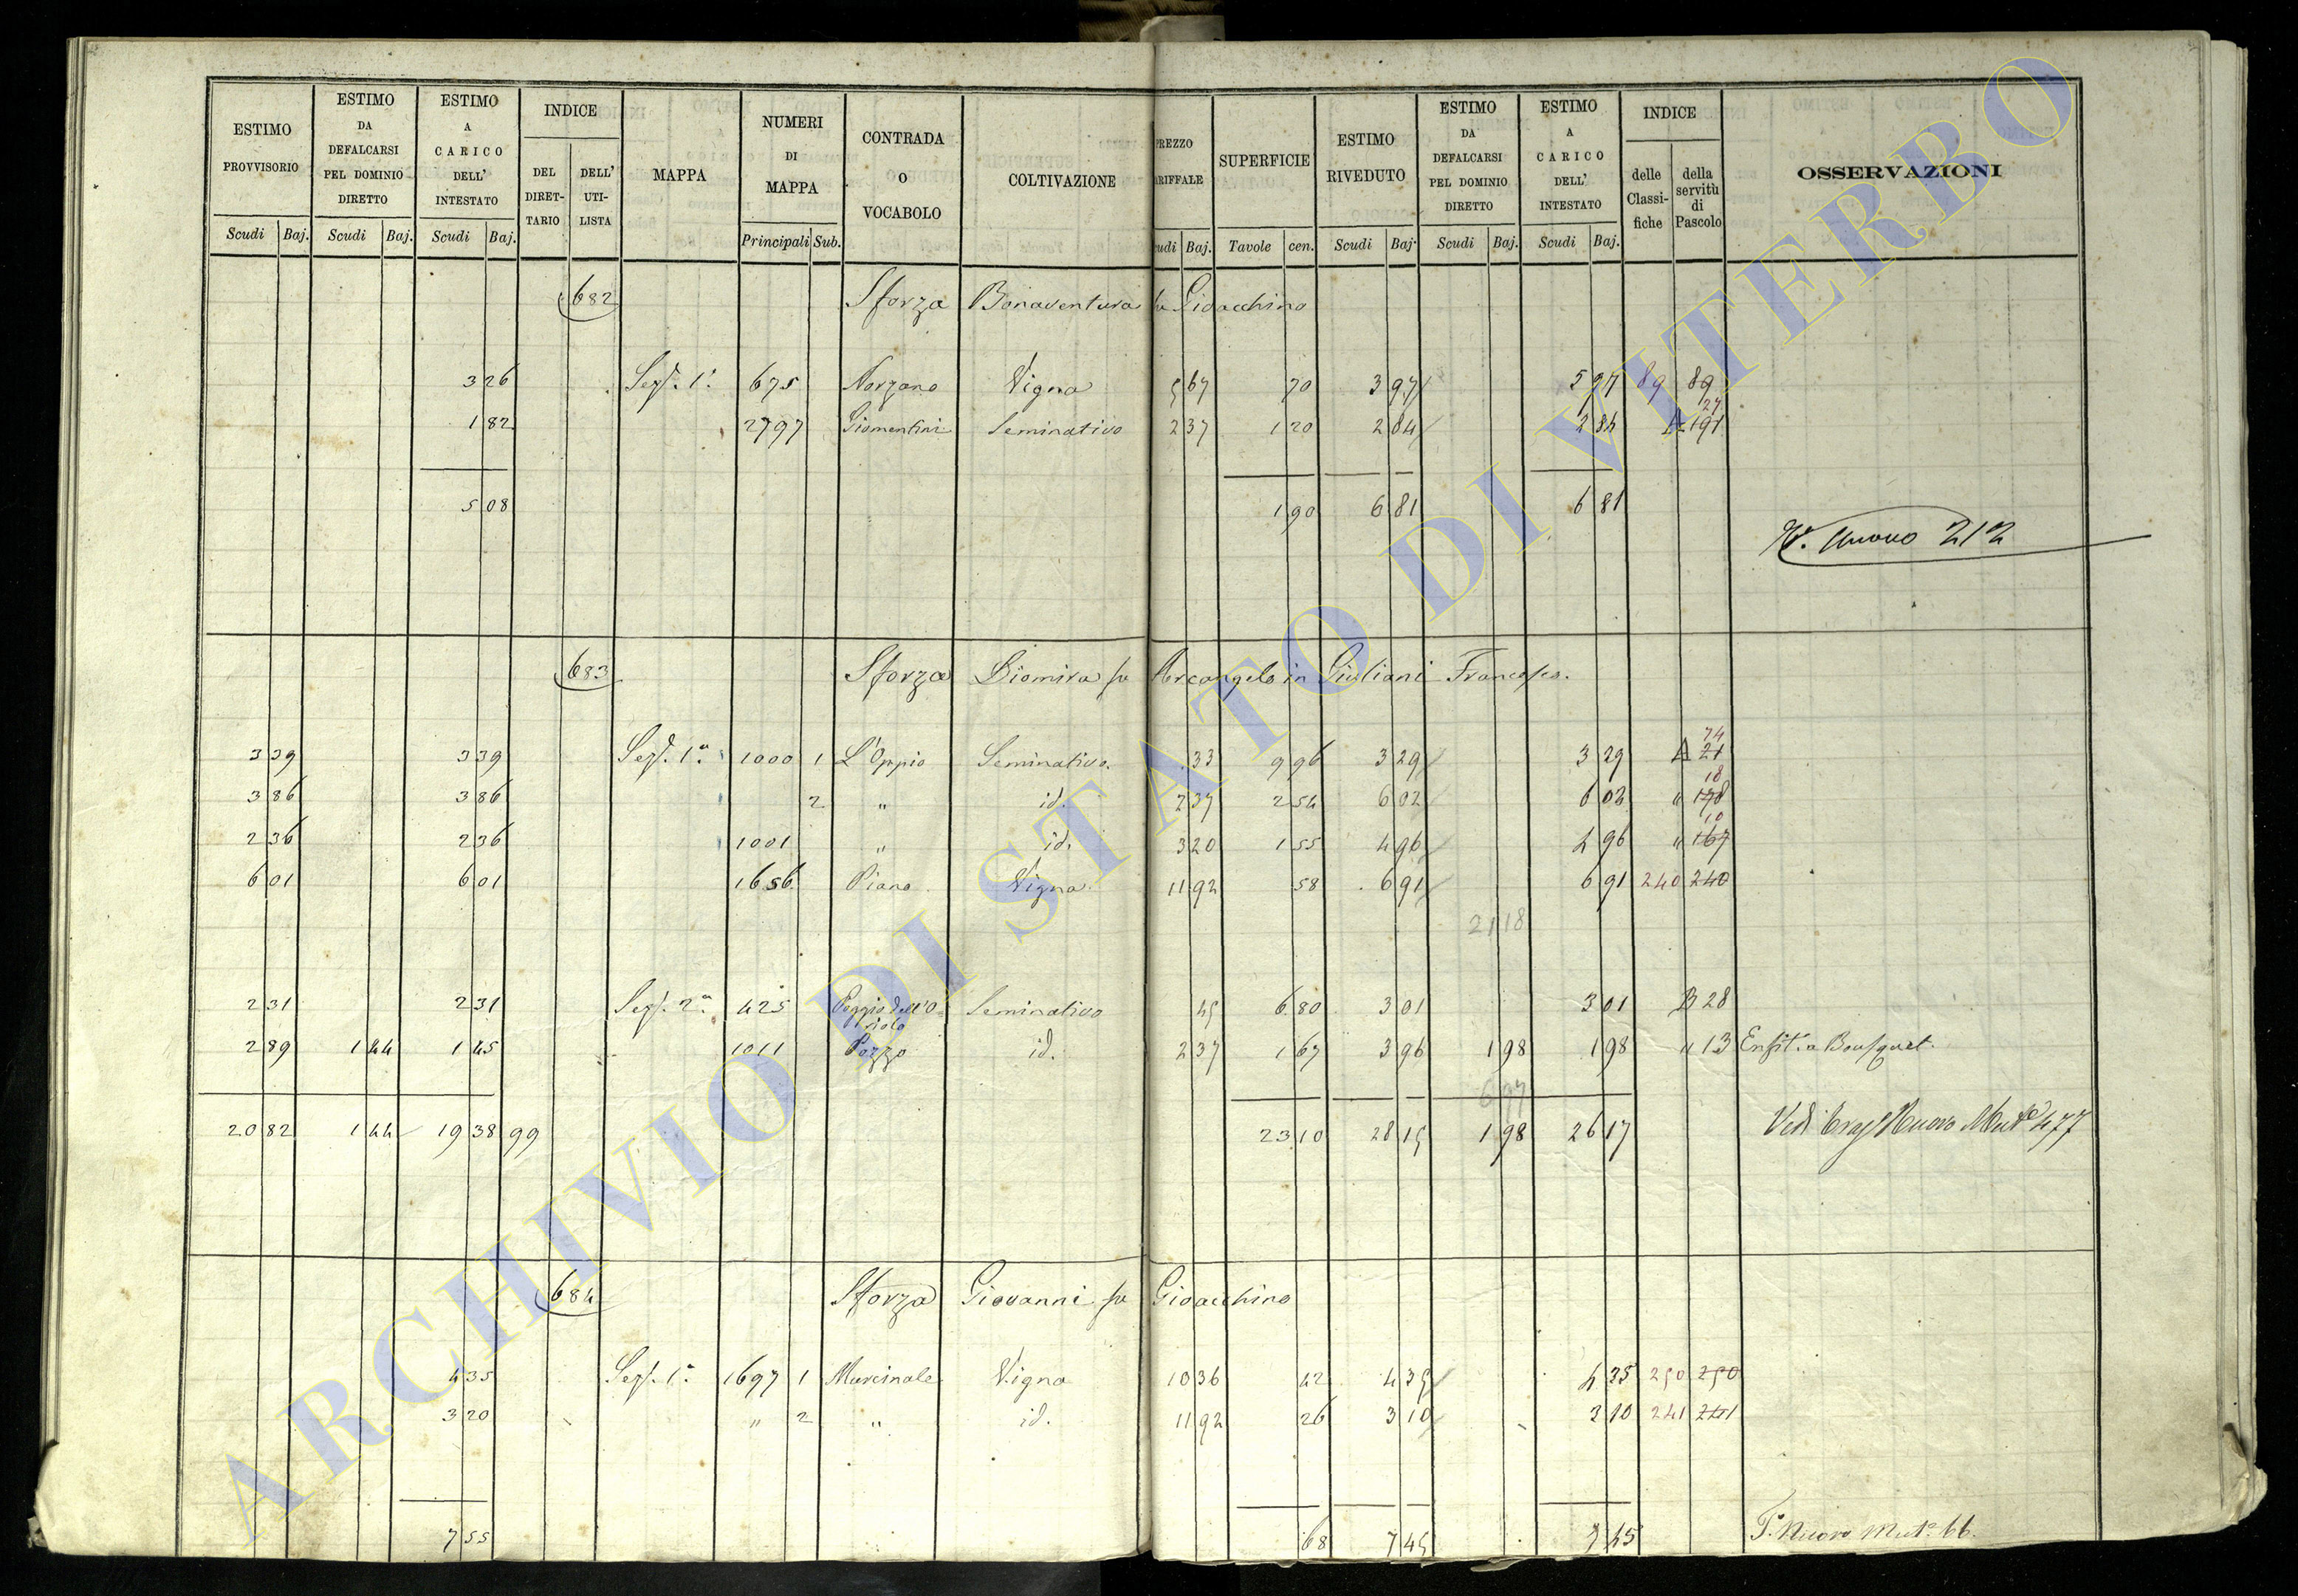 ESTIMO PROVVISORIO | ESTIMO DA DEFALCARSI PEL DOMINIO DIRETTO | ESTIMO A CARICO DELL' INTESTATO | INDICE | MAPPA | NUMERI DI MAPPA | CONTRADA O VOCABOLO | COLTIVAZIONE | PREZZO TARIFFALE | SUPERFICIE | ESTIMO RIVEDUTO | ESTIMO DA DEFALCARSI PEL DOMINIO DIRETTO | ESTIMO A CARICO DELL' INTESTATO | INDICE | OSSERVAZIONI
DEL DIRETTARIO | DELL' UTILISTA | delle Classifiche | della servitù di Pascolo
Scudi Baj. | Scudi Baj. | Scudi Baj. | Principali Sub. | udi Baj. | Tavole cen. | Scudi Baj. | Scudi Baj. | Scudi Baj.
682 Sforza Bonaventura fu Gioacchino
3 26 Sez. 1ª 675 Norzano Vigna 5 67 70 3 97 89 89
1 82 2797 Giomentini Seminativo 2 37 1 20 2 84 2 84 A 191 27
5 08 1 90 6 81 6 81
Nuovo 212
683 Sforza Diomira fu Arcangelo in Giuliani Francesco.
3 39 3 39 Sez. 1ª 1000 1 L'Oppio Seminativo. 33 9 96 3 29 3 29 A 21 74
3 86 3 86 2 " id. 2 37 2 54 6 02 6 02 " 178 18
2 36 2 36 1001 " id. 3 20 1 55 4 96 4 96 " 167 10
6 01 6 01 1656 Piano Vigna 11 92 58 6 91 6 91 240 240
21 18
2 31 2 31 Sez. 2ª 425 Poggio dell'O
riolo Seminativo 45 6 80 3 01 3 01 B 28
2 89 1 44 1 45 1011 Pozzo id. 2 37 1 67 3 96 1 98 1 98 " 13 Enfit. a Bousquet.
6 97
20 82 1 44 19 38 99 23 10 28 15 1 98 26 17 Vedi Nuovo 477
684 Sforza Giovanni fu Gioacchino
4 35 Sez. 1ª 1697 1 Marcinale Vigna 10 36 42 4 35 4 35 250 250
3 20 " 2 " id. 11 92 26 3 10 3 10 241 241
7 55 68 7 45 7 45 Nuovo Mut. 66.
ARCHIVIO DI STATO DI VITERBO